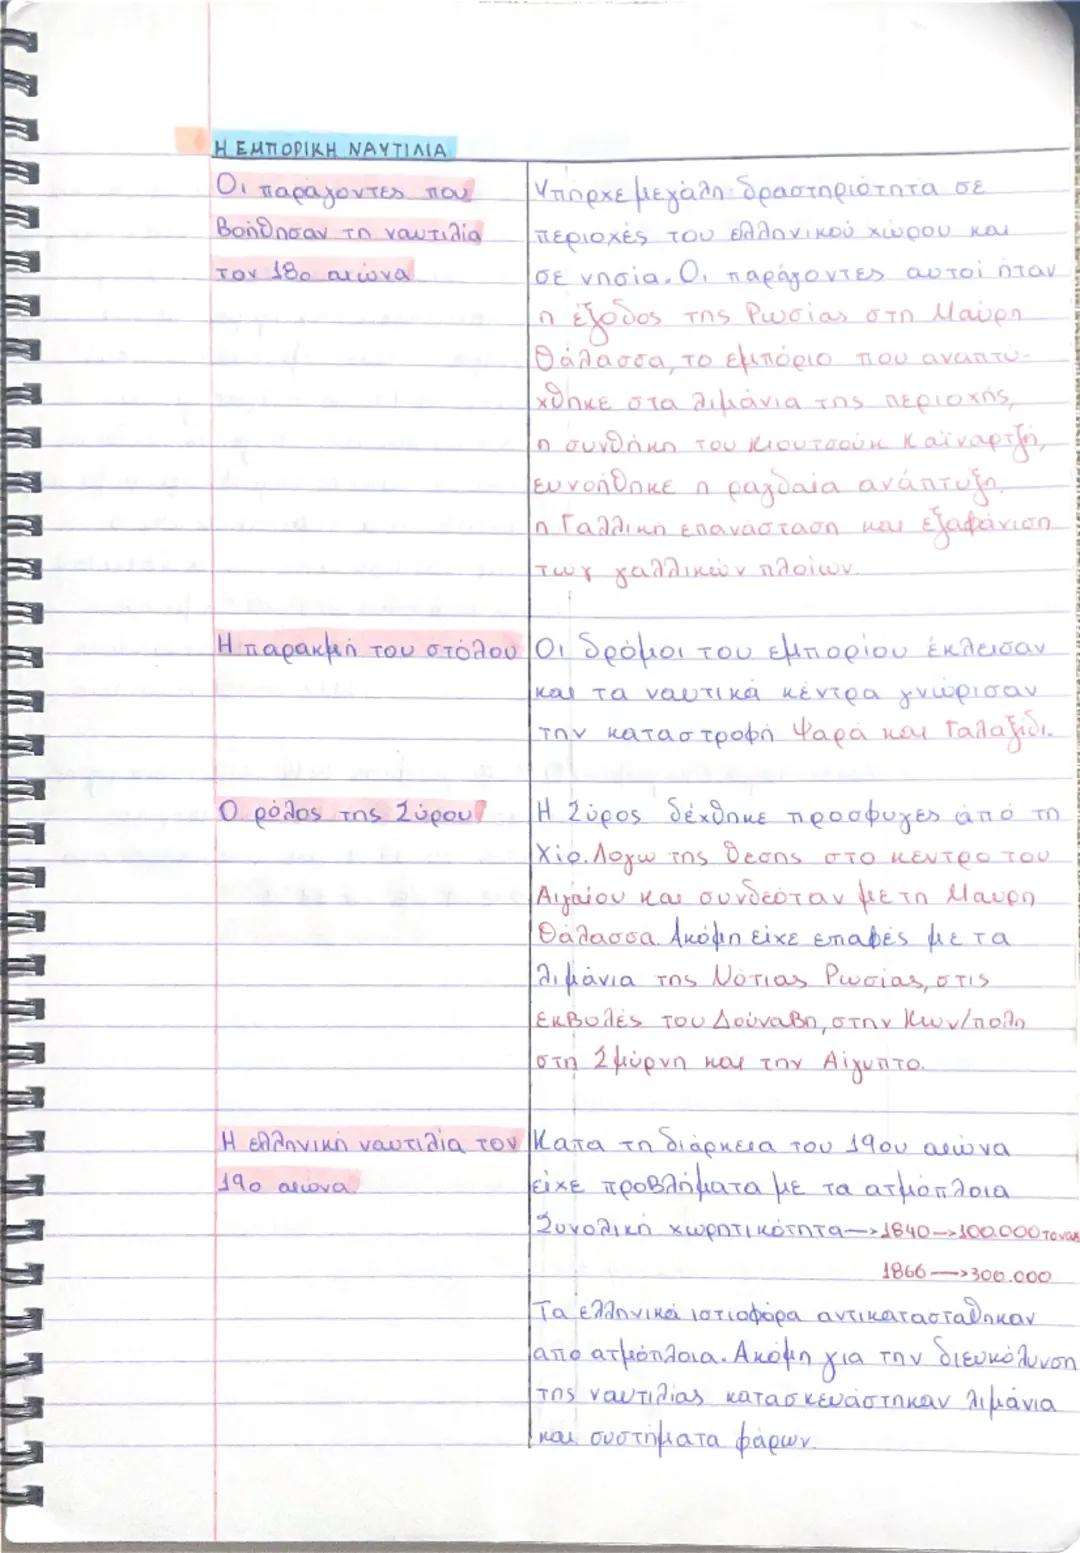 Η ΕΜΠΟΡΙΚΗ ΝΑΥΤΙΛΙΑ
Οι παράγοντες που
βοήθησαν τη ναυτιλία
τον 18ο αιώνα
Υπήρχε μεγάλη δραστηριότητα σε
περιοχές του ελληνικού χώρου και
σε νησία. Οι παράγοντες αυτοί ήταν
η έξοδος της Ρωσίας στη Μαύρη
Θάλασσα, το εμπόριο που αναπτύ-
χθηκε στα λιμάνια της περιοχής,
η συνθήκη του Κιουτσούκ Καϊναρτζή,
ευνοήθηκε η ραγδαία ανάπτυξη,
η Γαλλική επανάσταση και εξαφάνιση
των γαλλικών πλοίων.
Η παρακμή του στόλου
Οι δρόμοι του εμπορίου έκλεισαν
και τα ναυτικά κέντρα γνώρισαν
την καταστροφή Ψαρά και Γαλαξίδι.
Ο ρόλος της Σύρου
Η Σύρος δέχθηκε προσφυγες από τη
Χίο. Λογω της θεσης στο κεντρο του
Αιγαίου και συνδεόταν με τη Μαυρη
Θάλασσα. Ακόμη είχε επαφές με τα
λιμάνια της Νότιας Ρωσίας, στις
εκβολές του Δούναβη, στην Κων/πολη
στη Σμύρνη και την Αίγυπτο.
Η ελληνική ναυτιλία τον
19ο αιώνα.
Κατα τη διάρκεια του 19ου αιώνα
είχε προβλήματα με τα ατμόπλοια
Συνολική χωρητικότητα→1840→100.000 τόνους
1866→300.000
Τα ελληνικά ιστιοφόρα αντικατασταθηκαν
απο ατμόπλοια. Ακόμη για την διευκόλυνση
της ναυτιλίας κατασκευάστηκαν λιμάνια
και συστήματα φάρων.